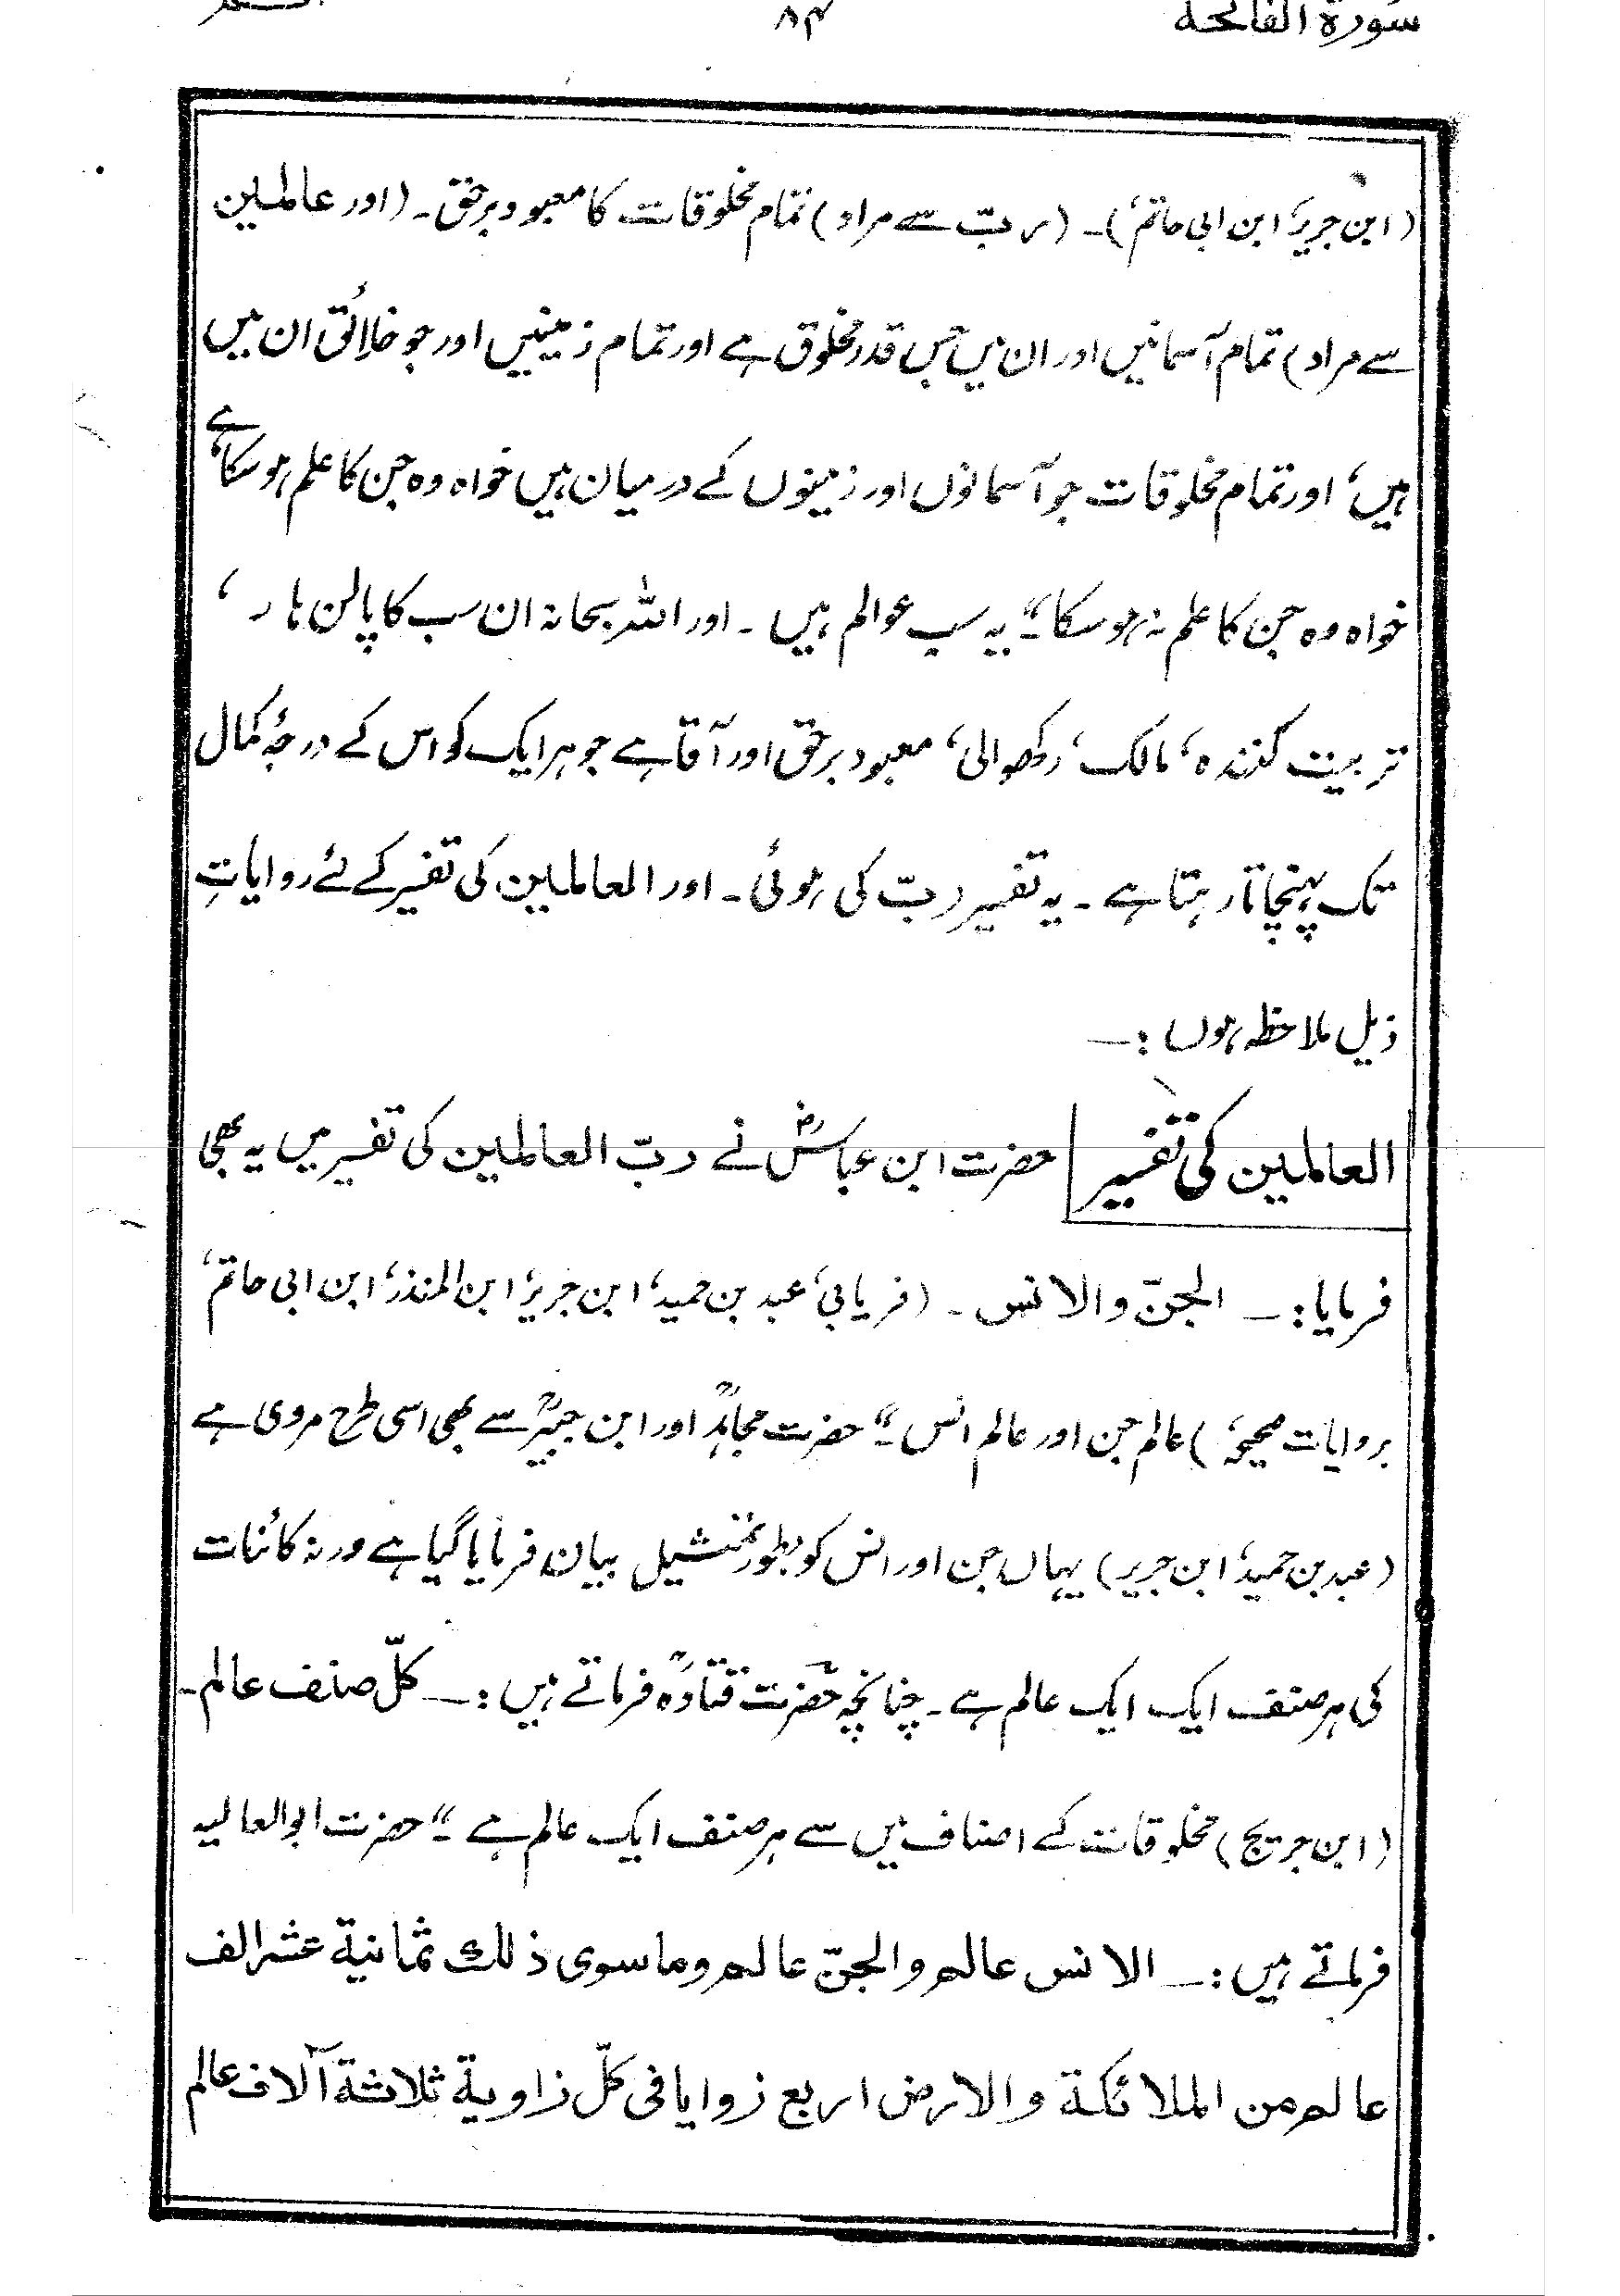 سورة الفاتحة ۸۴
(ابن جریر، ابن ابی حاتم)۔ (ربّ سے مراد) تمام مخلوقات کا معبود برحق۔ (اور عالمین
سے مراد) تمام آسمانیں اور ان میں جس قدر مخلوق ہے اور تمام زمینیں اور جو خلائق ان میں
ہیں، اور تمام مخلوقات جو آسمانوں اور زمینوں کے درمیان ہیں خواہ وہ جن کا علم ہو سکا ہے،
خواہ وہ جن کا علم نہ ہو سکا۔" یہ سب عوالم ہیں۔ اور اللہ سبحانہ ان سب کا پالن ہار،
تربیت کنندہ، مالک، رکھوالی، معبود برحق اور آقا ہے جو ہر ایک کو اس کے درجۂ کمال
تک پہنچاتا رہتا ہے۔ یہ تفسیر ربّ کی ہوئی۔ اور العالمین کی تفسیر کے لئے روایاتِ
ذیل ملاحظہ ہوں :—
العالمین کی تفسیر حضرت ابن عباسؓ نے ربّ العالمین کی تفسیر میں یہ بھی
فرمایا :— الجنّ والانس۔ (فریابی، عبد بن حمید، ابن جریر، ابن المنذر، ابن ابی حاتم،
بروایات صحیحہ) عالم جن اور عالم انس۔" حضرت مجاہدؒ اور ابن جبیرؒ سے بھی اسی طرح مروی ہے
(عبد بن حمید، ابن جریر) یہاں جن اور انس کو بطور تمثیل بیان فرمایا گیا ہے ورنہ کائنات
کی ہر صنف ایک ایک عالم ہے۔ چنانچہ حضرت قتادہؒ فرماتے ہیں :— کلّ صنف عالم۔
(ابن جریج) مخلوقات کے اصناف میں سے ہر صنف ایک عالم ہے۔" حضرت ابوالعالیہ
فرماتے ہیں :— الانس عالم والجنّ عالم وماسوی ذلك ثمانیة عشر الف
عالم من الملائکة والارض اربع زوایا فی کلّ زاویة ثلاثة آلاف عالم